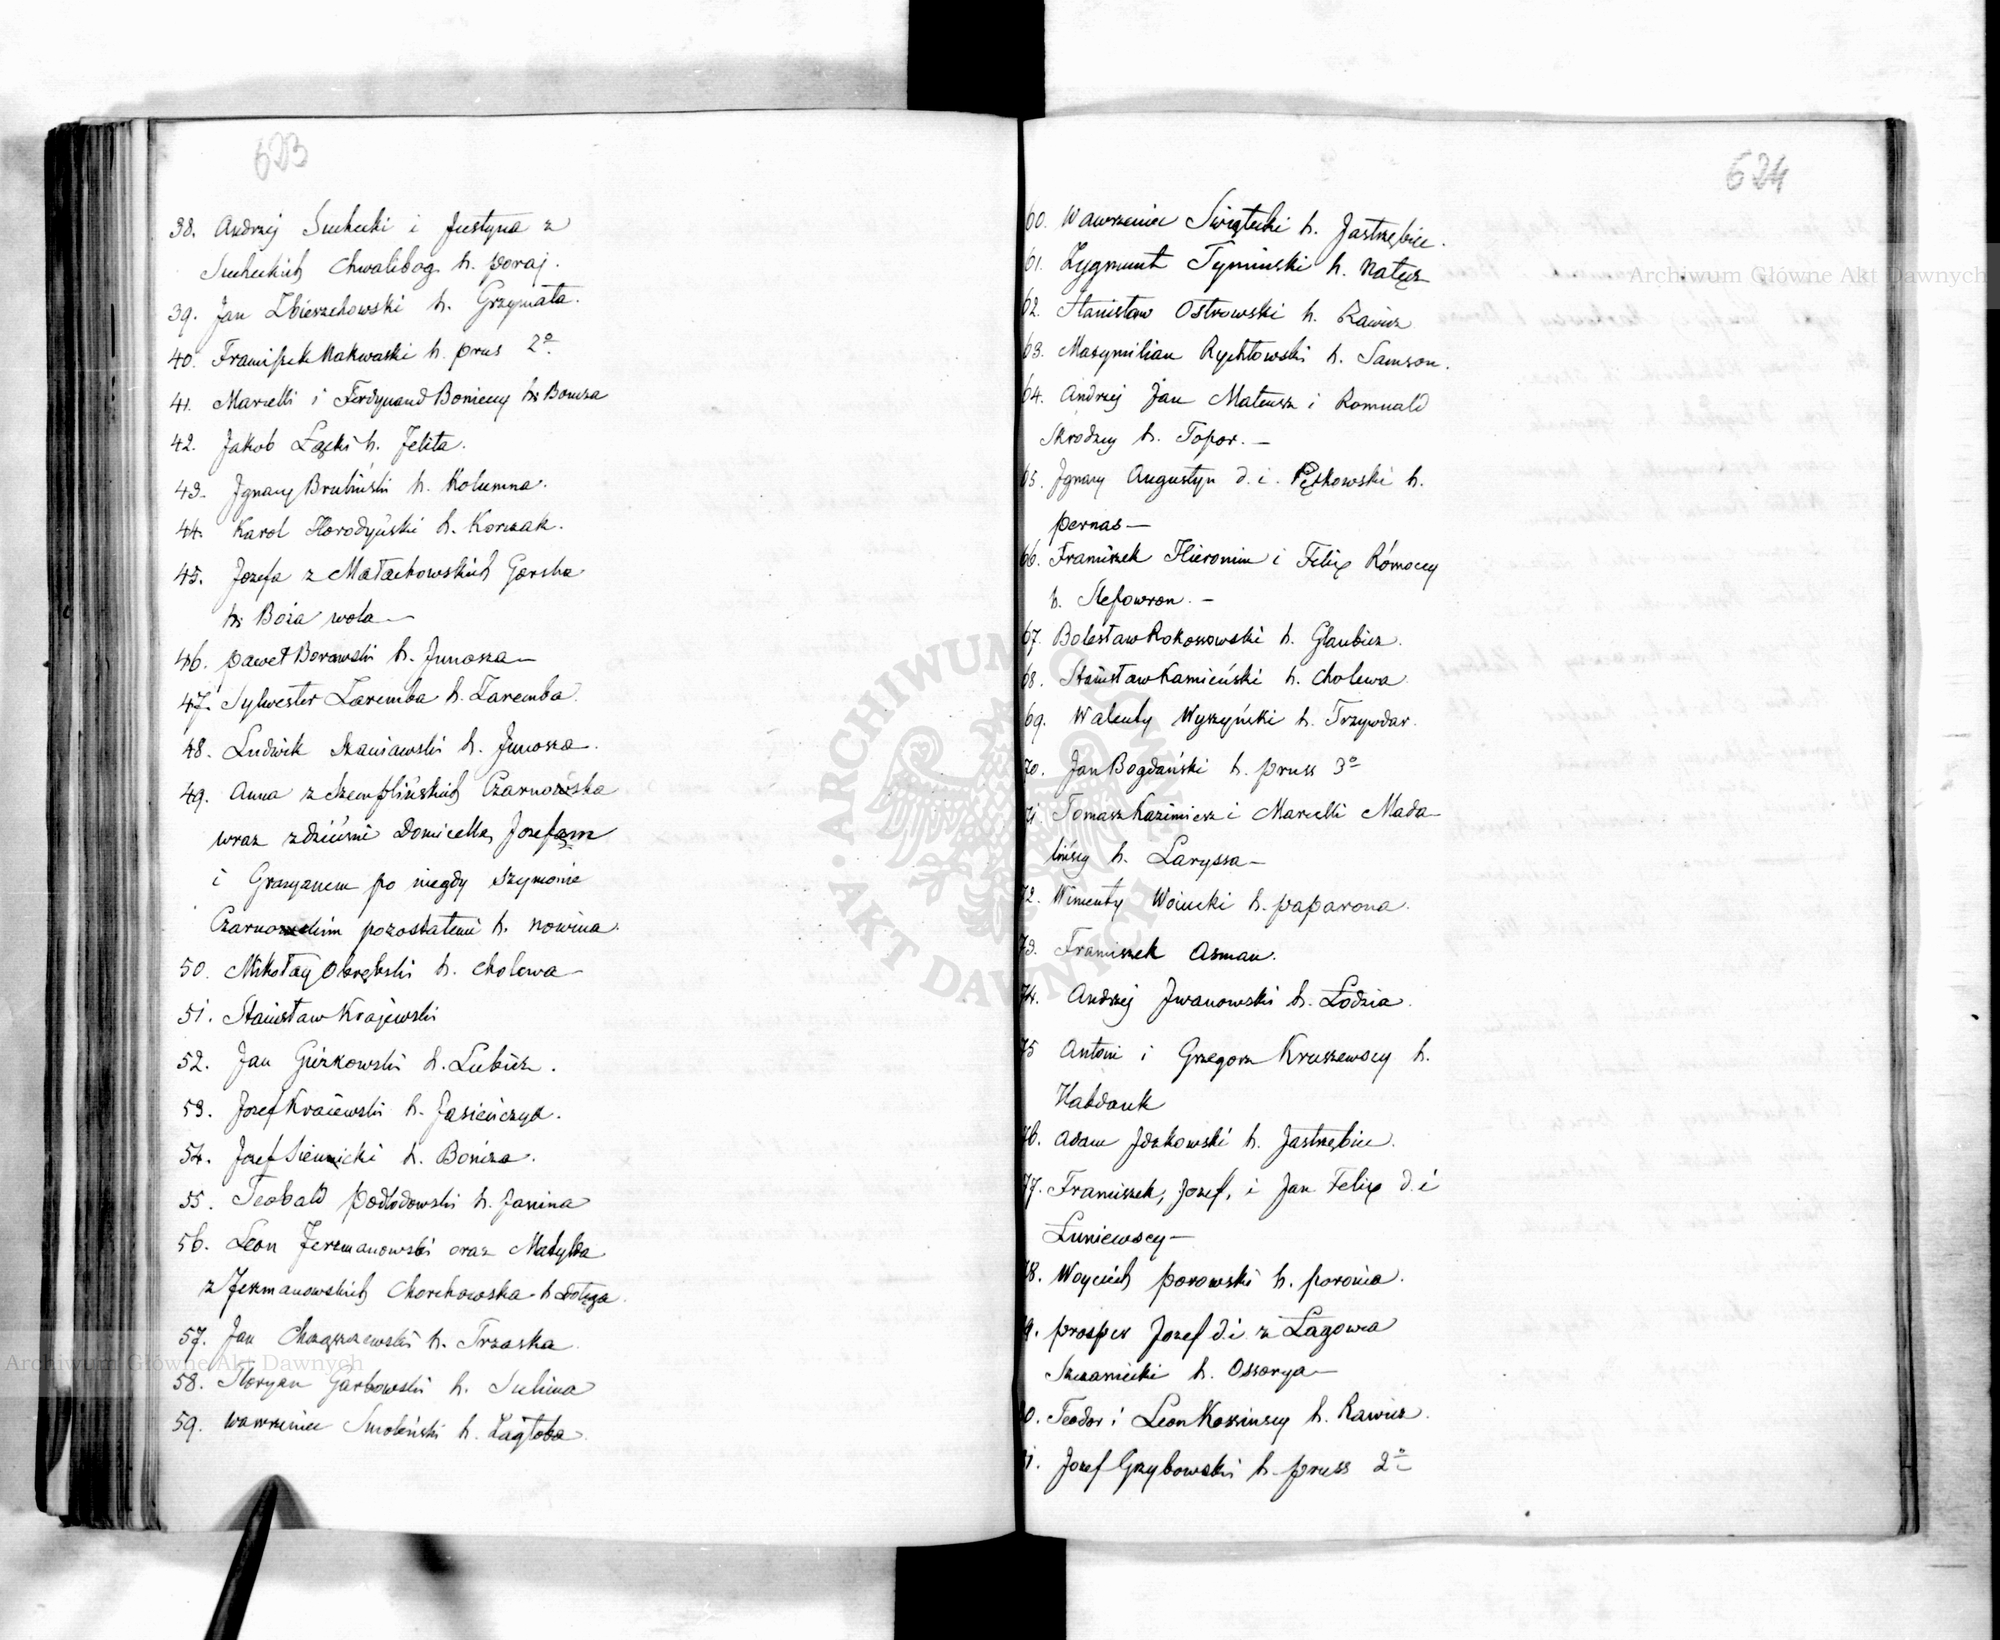 623
38. Andrzej Suchecki i Justyna z
Sucheckich Chwalibog h. Poraj.
39. Jan Zbierzchowski h. Grzymała.
40. Franciszek Nakwaski h. Prus 2º
41. Marcelli i Ferdynand Bonieccy h: Boncza
42. Jakob Łącki h. Jelita.
43. Jgnacy Brubiński h. Kolumna.
44. Karol Horodyński h. Korczak.
45. Jozefa z Małachowskich Garska
h: Boża wola —
46. Paweł Borawski h. Junosza —
47. Sylwester Zaremba h. Zaremba.
48. Ludwik Szaniawski h. Junosza.
49. Anna z Szemplińskich Czarnozska
wraz z dziećmi Domicellą Jozefam
i Gracyanem po niegdy Szymonie
pozostałemi h. Nowina.
50. Mikołay Obrębski h. Cholewa —
51. Stanisław Krajewski
52. Jan Giżkowski h. Lubicz.
53. Jozef Kraiewski h. Jasieńczyk.
54. Jozef Siennicki h. Bończa.
55. Teobald Podłodowski h. Janina
56. Leon Jerzmanowski oraz Matylda
z Jerzmanowskich Chorchowska h Dołęga.
57. Jan Chrząszczewski h. Trzaska
58. Floryan Garbowski h. Sulima
59. Wawrzeniec Smoleński h. Zagłoba.
624
60. Wawrzeniec Swięcicki h. Jastrzębiec.
61. Zygmunt Tymiński h. Nałęcz
62. Stanisław Ostrowski h. Rawicz
63. Maxymilian Rychłowski h. Samson.
64. Andrzej Jan Mateusz i Romuald
Skrodzcy h. Topor. —
65. Jgnacy Augustyn d. i. Pęskowski h.
Pernas —
66. Franciszek Hieronim i Felix Rómoccy
h. Slepowron. —
67. Bolesław Rokossowski h. Glaubicz.
68. Stanisław Kamieński h. Cholewa
69. Walenty Wyszyński h. Trzywdar.
70. Jan Bogdański h. Pruss 3º
71. Tomasz Kazimierz i Marcelli Mada
lińscy h. Laryssa —
72. Wincenty Woiucki h. Paparona.
73. Franciszek Asman.
74. Andrzej Jwanowski h. Łodzia.
75 Antoni i Grzegorz Kruszewscy h.
Habdank
76. Adam Jdzkowski h. Jastrzębiec.
77. Franciszek, Jozef, i Jan Felix d. i
Łuniewscy —
78. Woyciech Porowski h. Poronia.
9. Prosper Jozef d. i z Łagowa
Szczaniecki h. Ossorya —
0. Teodor i Leon Kossinscy h. Rawicz.
1. Jozef Grzybowski h. Pruss 2º
Archiwum Główne Akt Dawnych
Archiwum Główne Akt Dawnych
ARCHIWUM GŁÓWNE AKT DAWNYCH